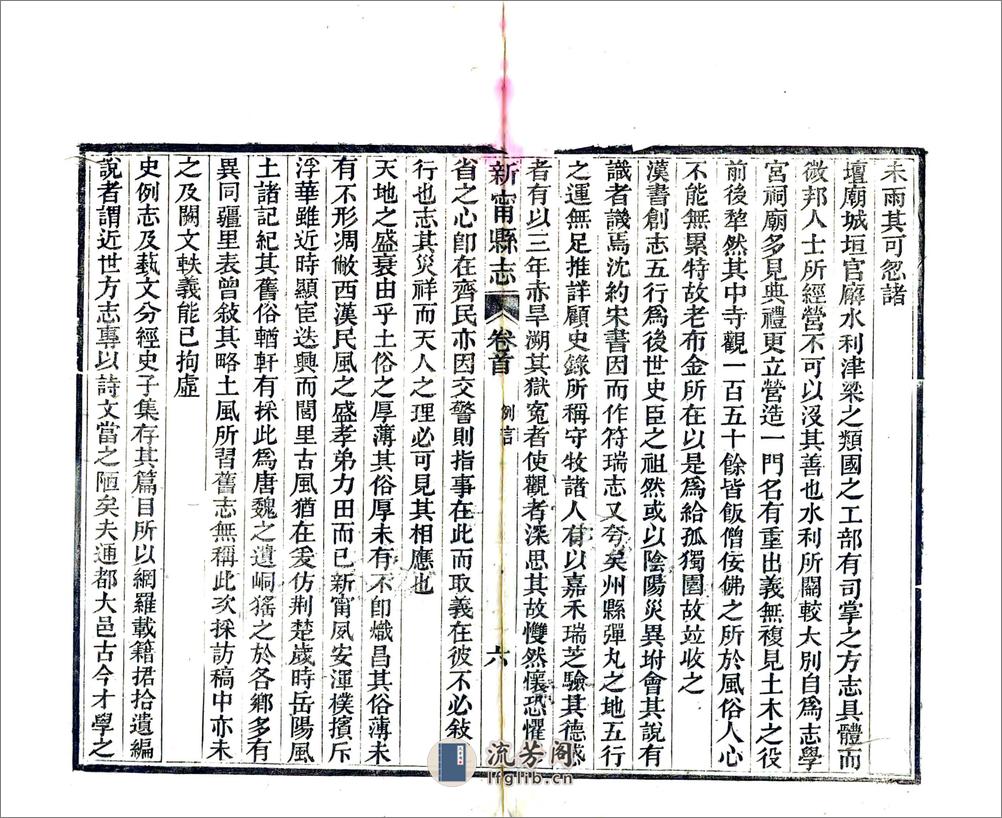 未雨其可忽諸
壇廟城垣官廨水利津梁之類國之工部有司掌之方志具體而
微邦人士所經營不可以沒其善也水利所關較大別自為志學
宮祠廟多見典禮更立營造一門名有重出義無複見土木之役
前後犂然其中寺觀一百五十餘皆飯僧佞佛之所於風俗人心
不能無累特故老布金所在以是為給孤獨園故竝收之
漢書創志五行為後世史臣之祖然或以陰陽災異坿會其說有
識者譏焉沈約宋書因而作符瑞志又夸矣州縣彈丸之地五行
之運無足推詳顧史錄所稱守牧諸人有以嘉禾瑞芝驗其德感
者有以三年赤旱溯其獄冤者使觀者深思其故戄然懷恐懼
新甯縣志
卷首
例言
六
省之心卽在齊民亦因交警則指事在此而取義在彼不必敍
行也志其災祥而天人之理必可見其相應也
天地之盛衰由乎土俗之厚薄其俗厚未有不卽熾昌其俗薄未
有不形凋敝西漢民風之盛孝弟力田而已新甯夙安渾樸擯斥
浮華雖近時顯宦迭興而閭里古風猶在爰仿荆楚歲時岳陽風
土諸記紀其舊俗輶軒有採此為唐魏之遺峒猺之於各鄉多有
異同疆里表曾敍其略土風所習舊志無稱此次採訪稿中亦未
之及闕文軼義能已拘虛
史例志及藝文分經史子集存其篇目所以網羅載籍捃拾遺編
說者謂近世方志專以詩文當之陋矣夫通都大邑古今才學之
流芳阁
lfglib.cn